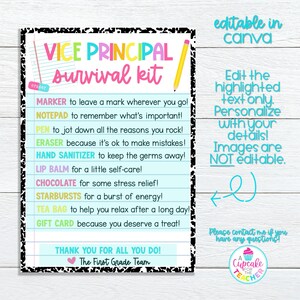 VICE PRINCIPAL
survival kit
MARKER to leave a mark wherever you go!
NOTEPAD to remember what's important!
PEN to jot down all the reasons you rock!
ERASER because it's ok to make mistakes!
HAND SANITIZER to keep the germs away!
LIP BALM for a little self-care!
CHOCOLATE for some stress relief!
STARBURSTS for a burst of energy!
TEA BAG to help you relax after a long day!
GIFT CARD because you deserve a treat!
THANK YOU FOR ALL YOU DO!
The First Grade Team
editable in
canva
Edit the
highlighted
text only.
Personalize
with your
details!
Images are
NOT editable.
Please contact me if you
have any questions!
A
Cupcake
for the
TEACHER